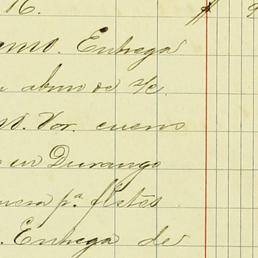 16.
Entrega
abono de %c.
Vor. cuero
en Durango
pª. fletes
Entrega de